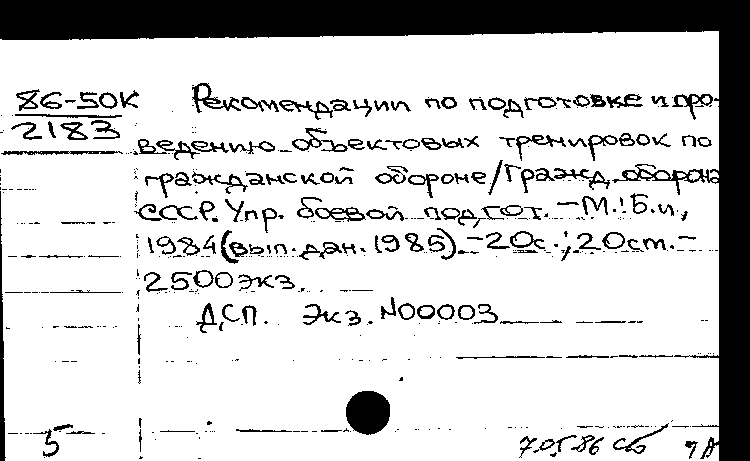 86-50К Рекомендации по подготовке и про-
2183
ведению объектовых тренировок по
гражданской обороне/Гражд. оборона
СССР. Упр. боевой подгот. -М.: Б.и,
1984(вып.дан.1985). -20с.; 20см.-
2500экз.
ДСП. Экз. №00003
5 7.05.86